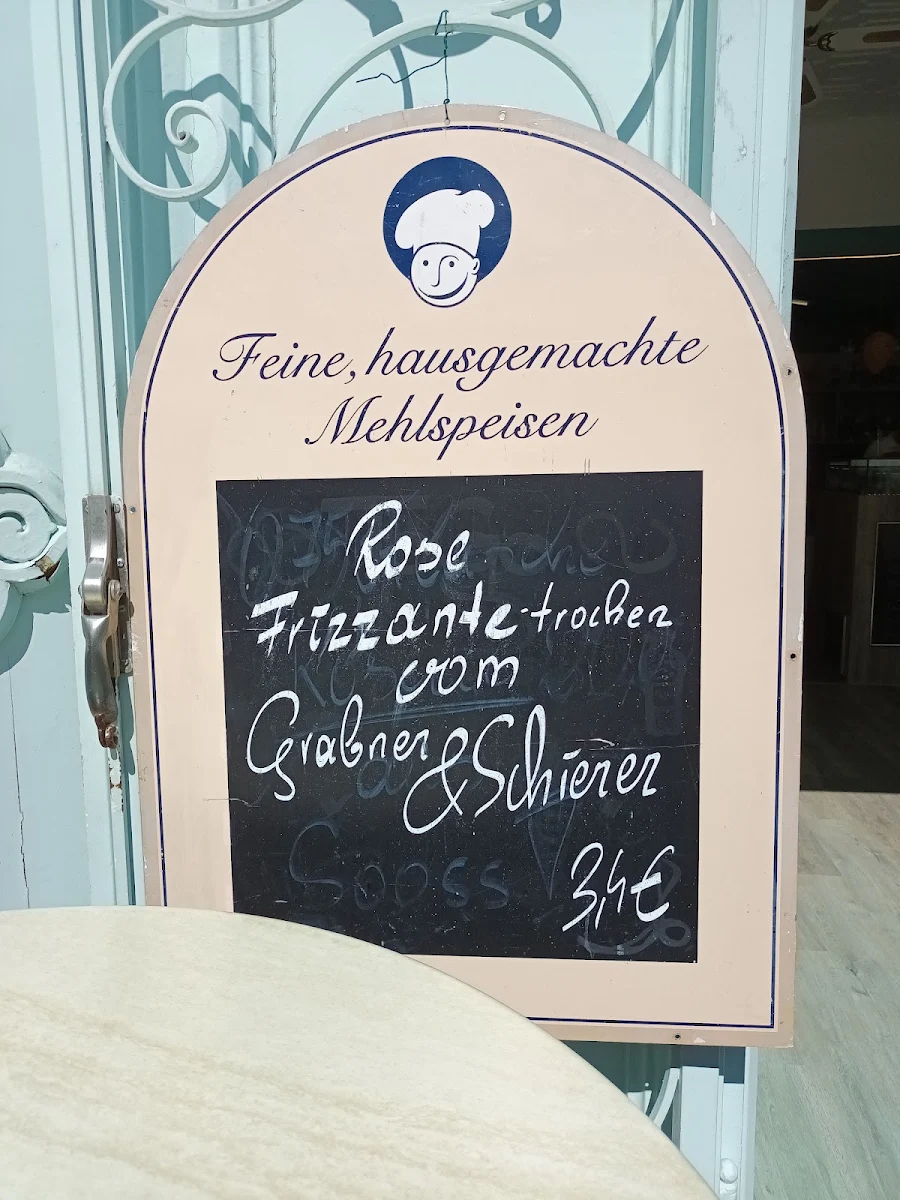 Feine, hausgemachte
Mehlspeisen
Rose
Frizzante-trocken
vom
Grabner
& Schierer
3,4€
Gooss